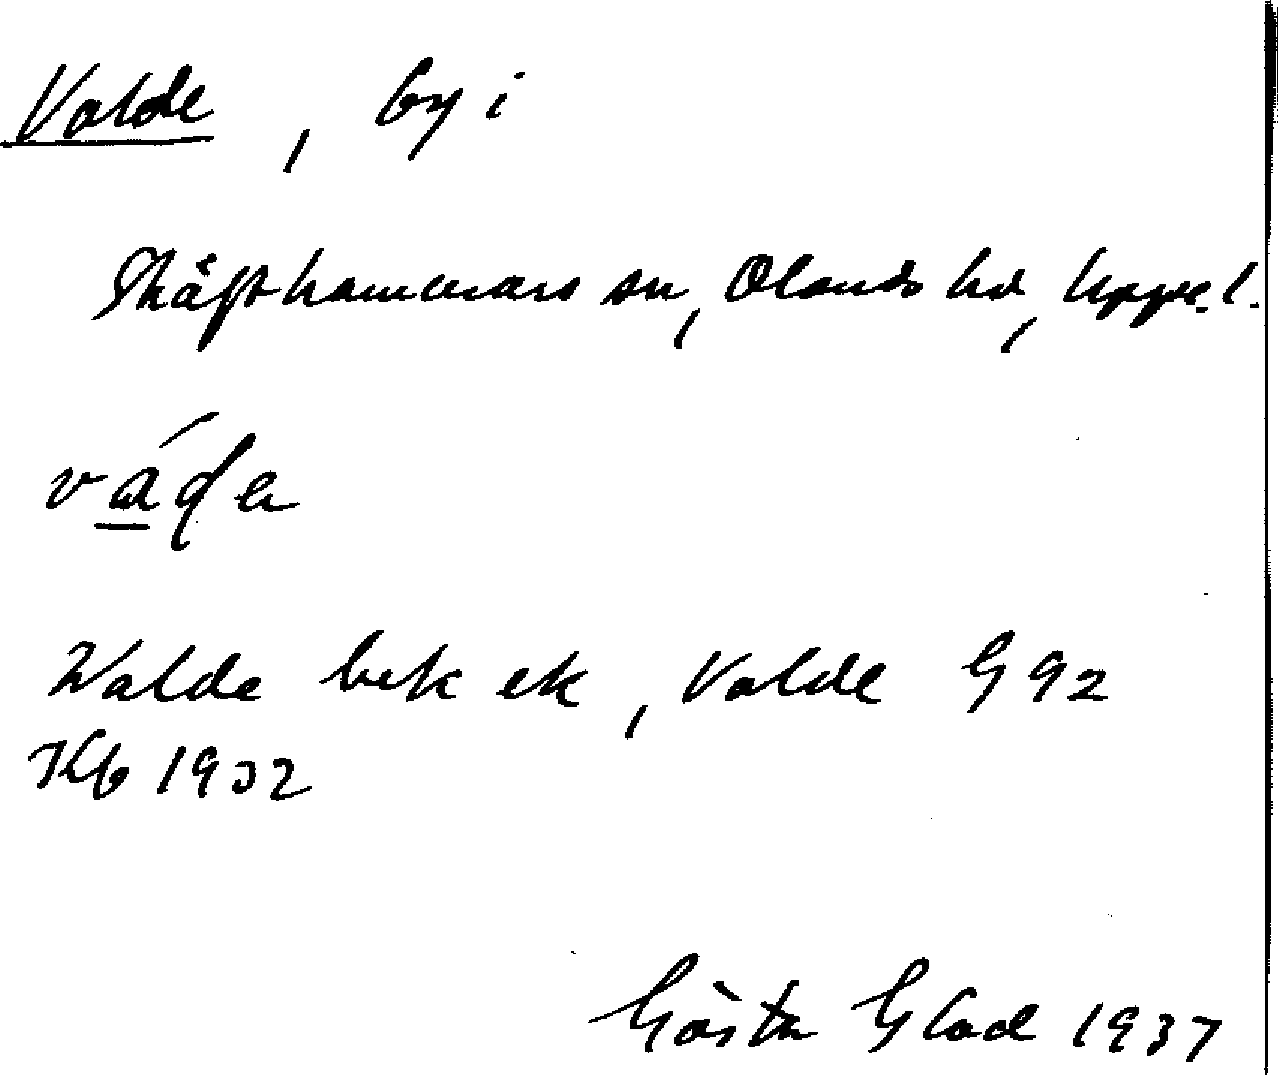 Valde, by i
Skäfthammars sn, Olands hd, Upps. l.
Walde bek ek, Valde G 92
Kb 1932
Gösta Glad 1937